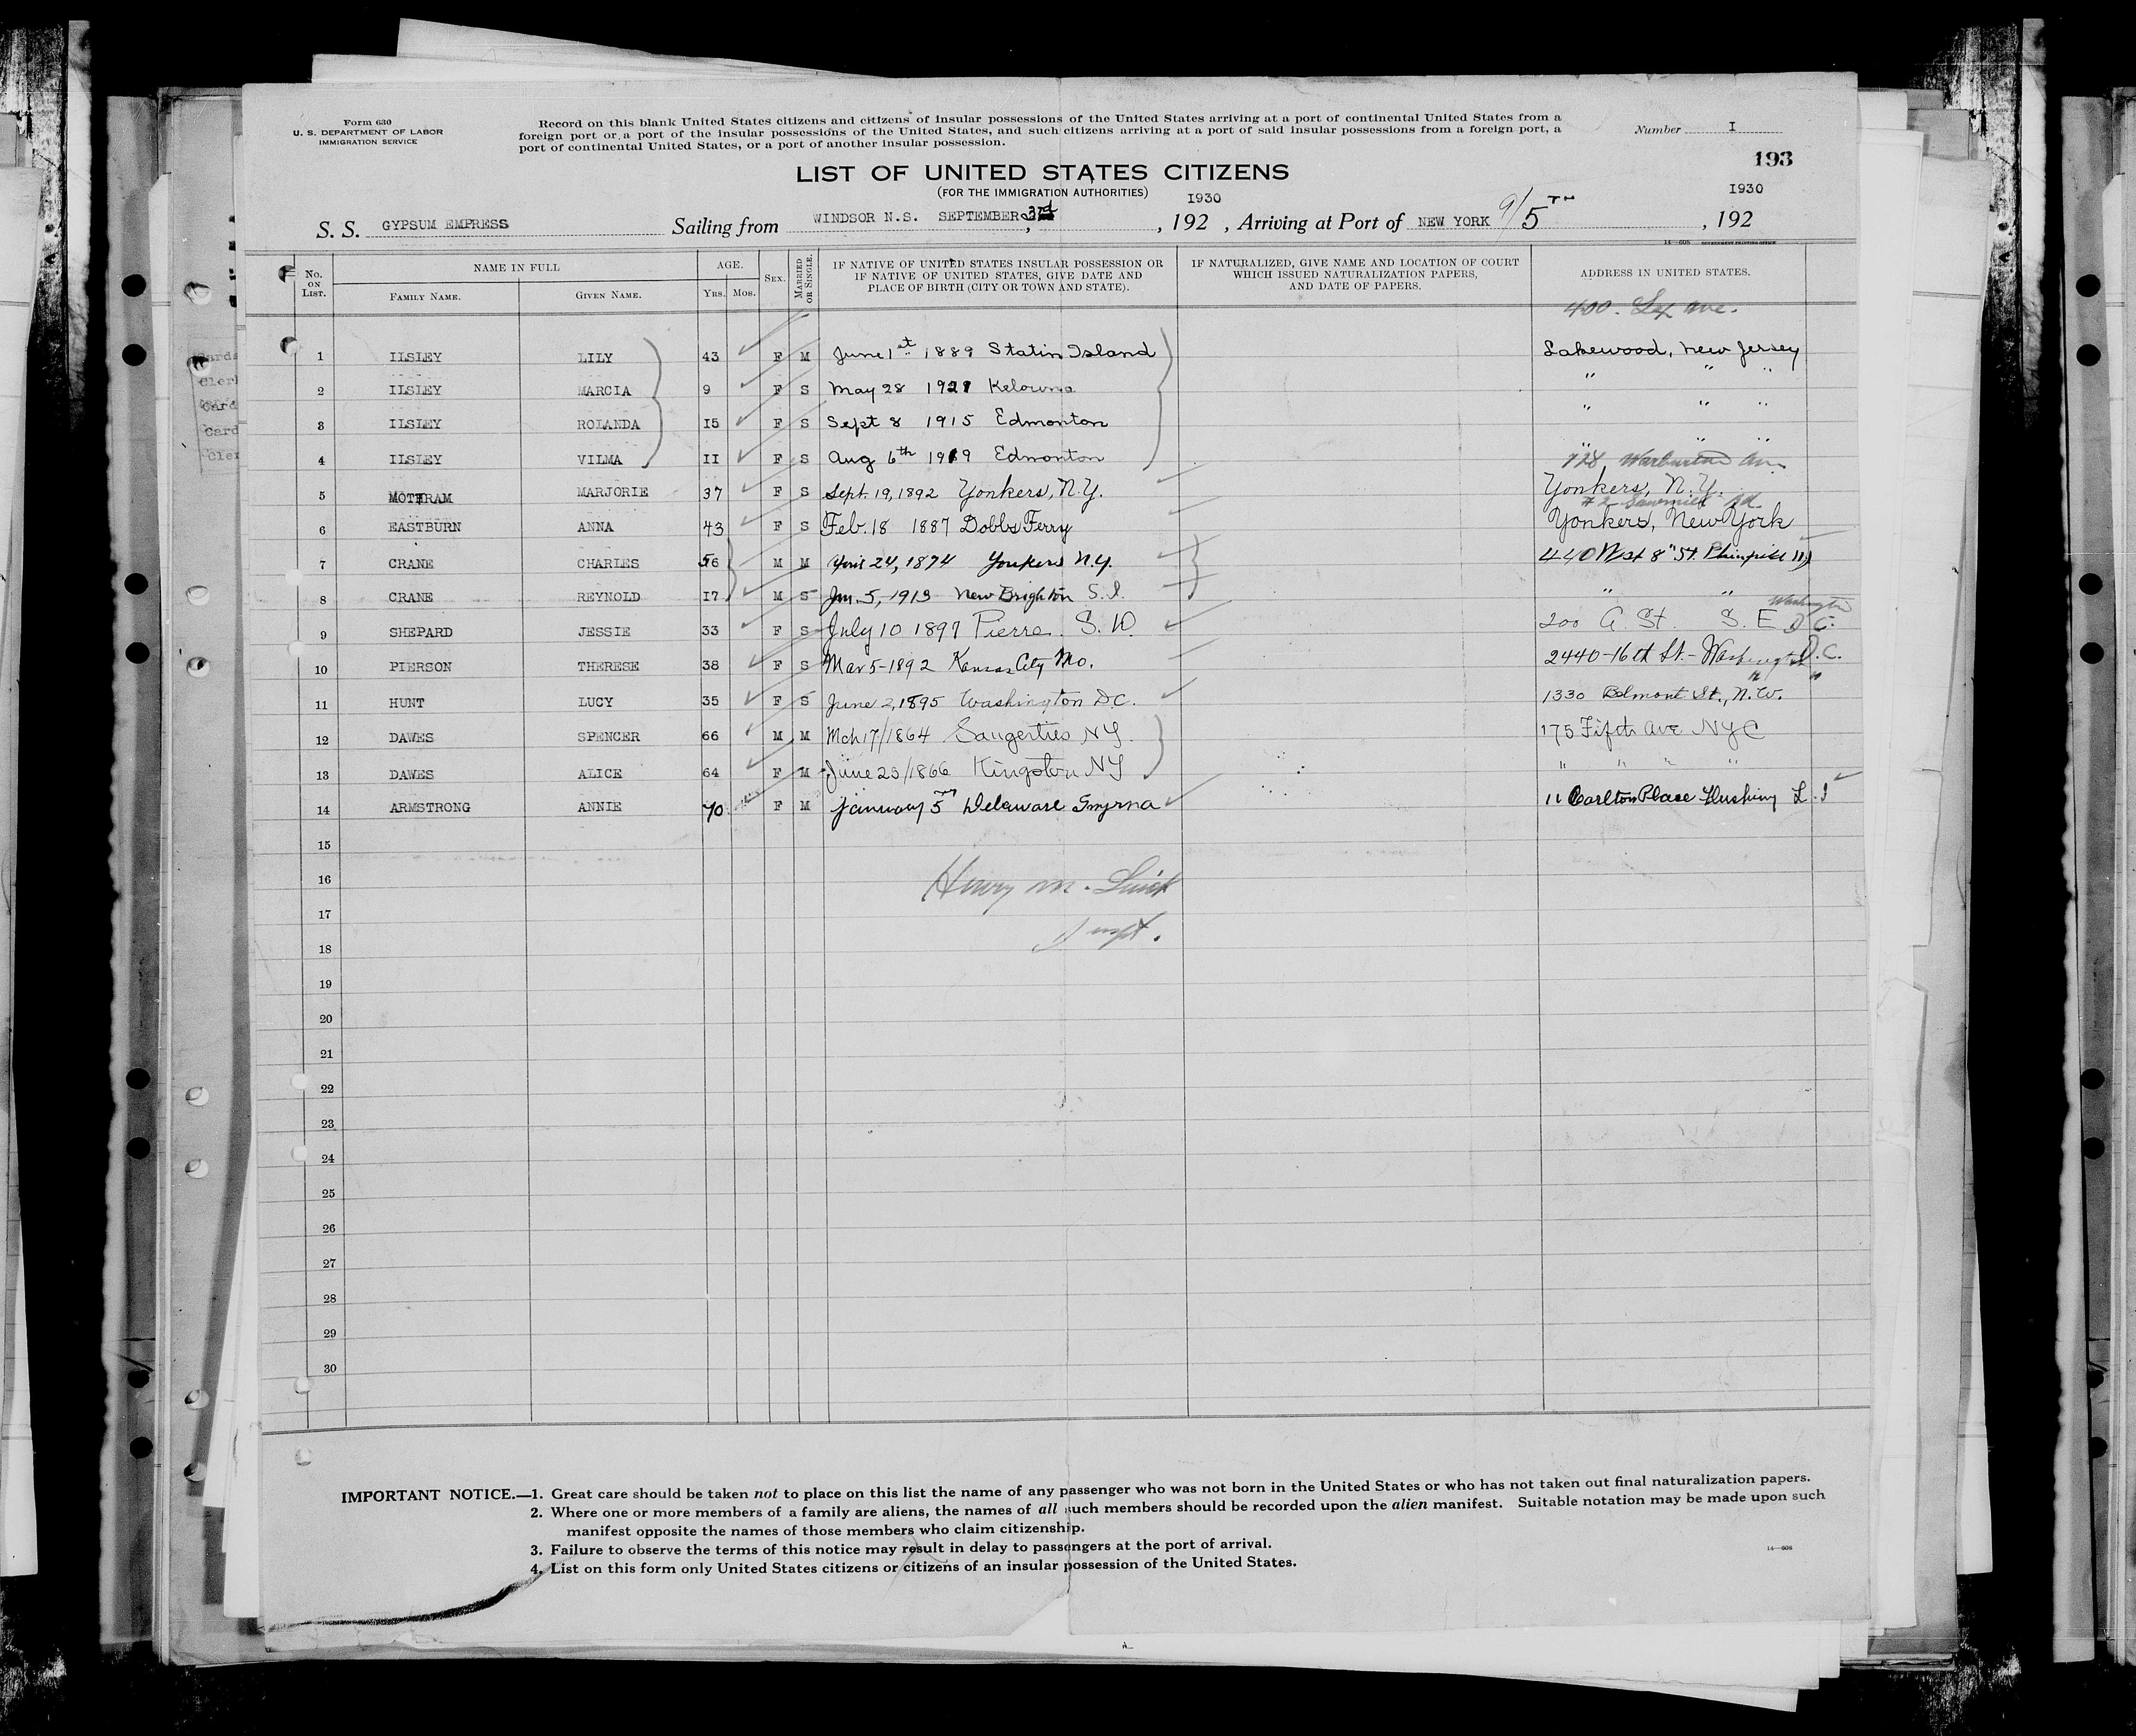 Form 630
U. S. DEPARTMENT OF LABOR
IMMIGRATION SERVICE
Record on this blank United States citizens and citizens of insular possessions of the United States arriving at a port of continental United States from a
foreign port or a port of the insular possessions of the United States, and such citizens arriving at a port of said insular possessions from a foreign port, a
port of continental United States, or a port of another insular possession.
Number I
193
LIST OF UNITED STATES CITIZENS
(FOR THE IMMIGRATION AUTHORITIES)
1930 1930
S. S. GYPSUM EMPRESS Sailing from WINDSOR N.S. SEPTEMBER 3rd, 192 , Arriving at Port of NEW YORK 9/5TH , 192
14—608 GOVERNMENT PRINTING OFFICE
No. ON LIST. NAME IN FULL FAMILY NAME. GIVEN NAME. AGE. YRS. MOS. SEX. MARRIED OR SINGLE. IF NATIVE OF UNITED STATES INSULAR POSSESSION OR IF NATIVE OF UNITED STATES, GIVE DATE AND PLACE OF BIRTH (CITY OR TOWN AND STATE). IF NATURALIZED, GIVE NAME AND LOCATION OF COURT WHICH ISSUED NATURALIZATION PAPERS, AND DATE OF PAPERS. ADDRESS IN UNITED STATES.
400. Lex Ave.
1 ILSLEY LILY 43 F M June 1st 1889 Statin Island Lakewood, New Jersey
2 ILSLEY MARCIA 9 F S May 28 1921 Kelowna " " "
3 ILSLEY ROLANDA I5 F S Sept 8 1915 Edmonton " " "
4 ILSLEY VILMA II F S Aug 6th 1919 Edmonton " " "
728 Warburton Ave
5 MOTTRAM MARJORIE 37 F S Sept. 19, 1892 Yonkers, N.Y. Yonkers, N.Y.
#2 Sawmill Rd.
6 EASTBURN ANNA 43 F S Feb. 18 1887 Dobbs Ferry Yonkers, New York
7 CRANE CHARLES 56 M M April 24, 1874 Yonkers N.Y. 440 West 8" St. Plainfield NJ
8 CRANE REYNOLD I7 M S Jan. 5, 1913 New Brighton S.I. " "
Washington
9 SHEPARD JESSIE 33 F S July 10 1897 Pierre S. D. 200 A St. S. E D C.
10 PIERSON THERESE 38 F S Mar 5-1892 Kansas City Mo. 2440-16th St.- Washington D.C.
" "
11 HUNT LUCY 35 F S June 2, 1895 Washington D.C. 1330 Belmont St., N.W.
12 DAWES SPENCER 66 M M Mch 17/1864 Saugerties NY. 175 Fifth Ave NYC
13 DAWES ALICE 64 F M June 25/1866 Kingston NY " " " "
14 ARMSTRONG ANNIE 70 F M January 5 Delaware Smyrna 11 Carlton Place Flushing L.I
15
16 Henry M.
17
18
19
20
21
22
23
24
25
26
27
28
29
30
IMPORTANT NOTICE.—1. Great care should be taken not to place on this list the name of any passenger who was not born in the United States or who has not taken out final naturalization papers.
2. Where one or more members of a family are aliens, the names of all such members should be recorded upon the alien manifest. Suitable notation may be made upon such
manifest opposite the names of those members who claim citizenship.
3. Failure to observe the terms of this notice may result in delay to passengers at the port of arrival.
4. List on this form only United States citizens or citizens of an insular possession of the United States.
14—608